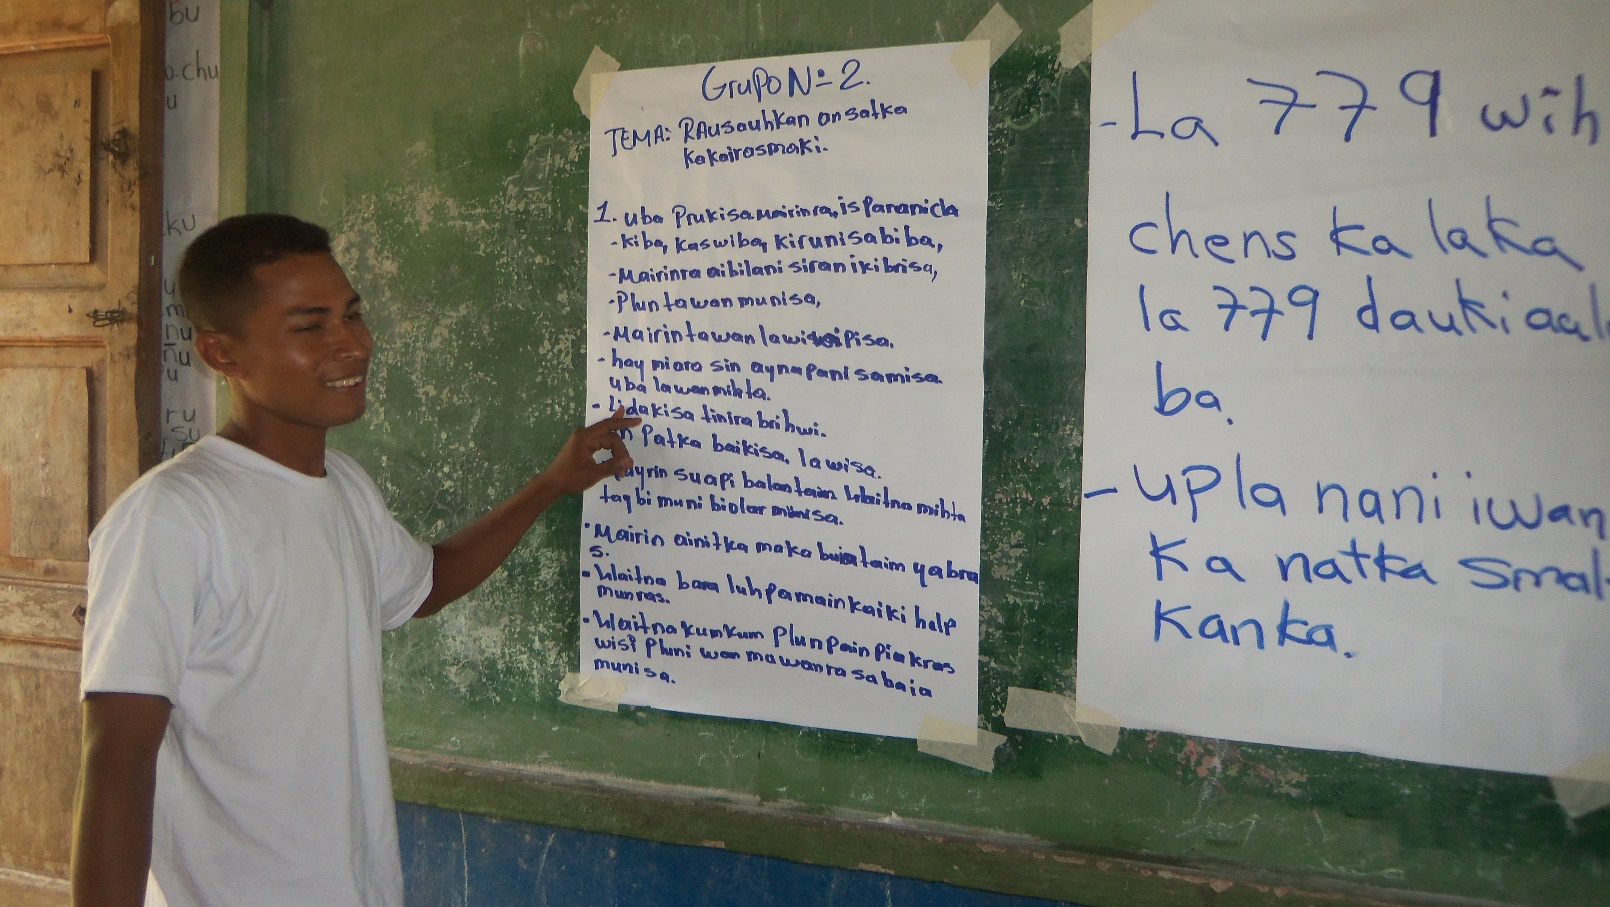 bu
o-chu
u
ku
u
nu
ñu
u
ru
su
Grupo Nº 2.
TEMA: RAusauhkan an satka
kakairasmaki.
1. uba Prukisa mairinra, is Pananicla
- kiba, kaswiba, kirunisabiba,
- Mairinra aibilani siran ikibrisa,
- Plun tawan munisa,
- Mairin tawan lawi sa.
- hay piara sin aynapani samisa
uba lawan mihta.
- Lidakisa tinira bri hwi.
Patka baikisa, lawisa.
suapi balantaim Waitna mihta
taq bi muni biolar munisa.
Mairin ainitka maka taim yabra
s.
- Waitna bara luhpamain kaiki help
munras.
- Waitna kumkum Plun Pain Piakras
wisi Pluni wan mawanra sabaia
munisa.
- La 779 wih
chens ka laka
la 779 dauki aal
ba.
- upla nani iwan
Ka natka smal
Kanka.